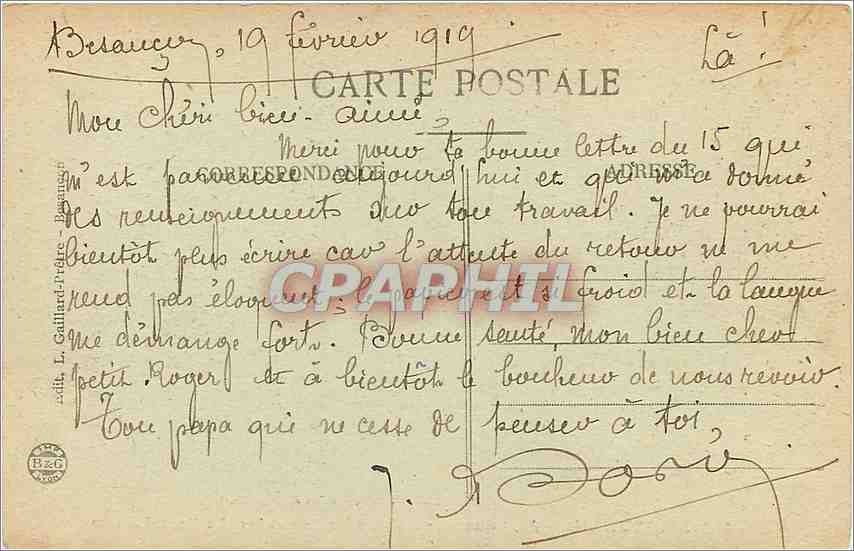 Besançon, 19 février 1919
Là !
CARTE POSTALE
Mon chéri bien-aimé,
Merci pour ta bonne lettre du 15 qui
CORRESPONDANCE
ADRESSE
m'est parvenue aujourd'hui et qui m'a donné
des renseignements sur ton travail. Je ne pourrai
bientôt plus écrire car l'attente du retour ne me
rend pas éloquent; le papier est si froid et la langue
CPAPHIL
me démange fort. Bonne santé, mon bien cher
petit Roger et à bientôt le bonheur de nous revoir.
Ton papa qui ne cesse de penser à toi,
Edit. L. Gaillard-Prêtre - Besançon
IMP.
B&G
LYON